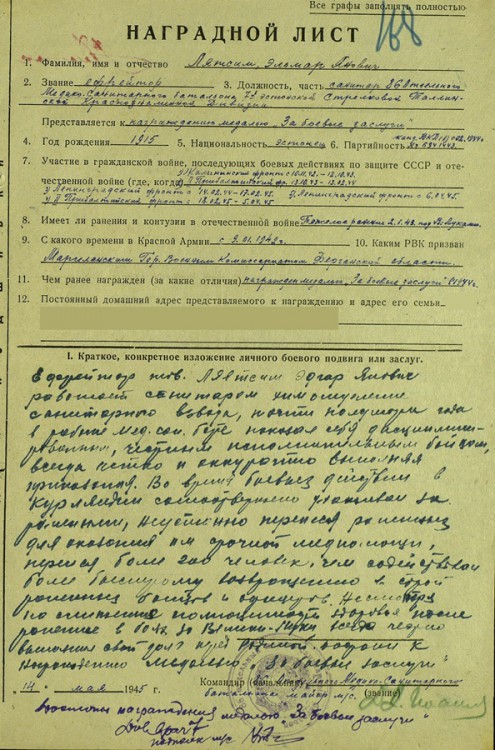 Все графы заполнять полностью
168
НАГРАДНОЙ ЛИСТ
1. Фамилия, имя и отчество Лятсим Элмар Янович
2. Звание ефрейтор 3. Должность, часть санитар 86 Отдельного
Медико-Санитарного батальона 7й Эстонской Стрелковой Таллин-
ской Краснознаменной Дивизии
Представляется к награждению медалью „За боевые заслуги“
4. Год рождения 1915 5. Национальность эстонец 6. Партийность канд. ВКП(б) с 02.1944г.
7. Участие в гражданской войне, последующих боевых действиях по защите СССР и оте-
чественной войне (где, когда) 1/ Калининский фронт с 10.11.42 - 12.10.43.
2/ II Прибалтийский фр. 13.10.43 - 13.02.44
3/ Ленинградский фронт 14.02.44 - 17.02.45. Ленинградский фронт с 6.04.45.
4/ II Прибалтийский фронт с 18.02.45 - 5.04.45
8. Имеет ли ранения и контузии в отечественной войне Тяжело ранен 2.1.43. под В. Луками.
9. С какого времени в Красной Армии с 9.01.1942г. 10. Каким РВК призван
Маргеланским Гор. Военным Комиссариатом Ферганской области.
11. Чем ранее награжден (за какие отличия) награжден медалью „За боевые заслуги“
12. Постоянный домашний адрес представляемого к награждению и адрес его семьи
I. Краткое, конкретное изложение личного боевого подвига или заслуг.
Ефрейтор тов. Лятсим Эдгар Янович
работает санитаром химотделения
санитарного взвода, почти полтора года
в работе мед. сан. бате показал себя дисциплини-
рованным, честным исполнительным бойцом,
всегда четко и аккуратно выполняя
приказания. Во время боевых действий в
Курляндии самоотверженно ухаживал за
ранеными, перенося раненых
для оказания им срочной медпомощи,
перенес более 200 человек, чем содействовал
более быстрому возвращению в строй
раненых бойцов и офицеров. Несмотря
на здоровья после
ранение в боях за Великие-Луки всегда честно
выполнял свой долг перед родиной к
награждению медалью „За боевые заслуги“
14. мая 1945 г. Командир (начальник) Медико-Санитарного
батальона майор м/с (звание)
награждения медалью „За боевые заслуги“
Див. врач 7
м/с